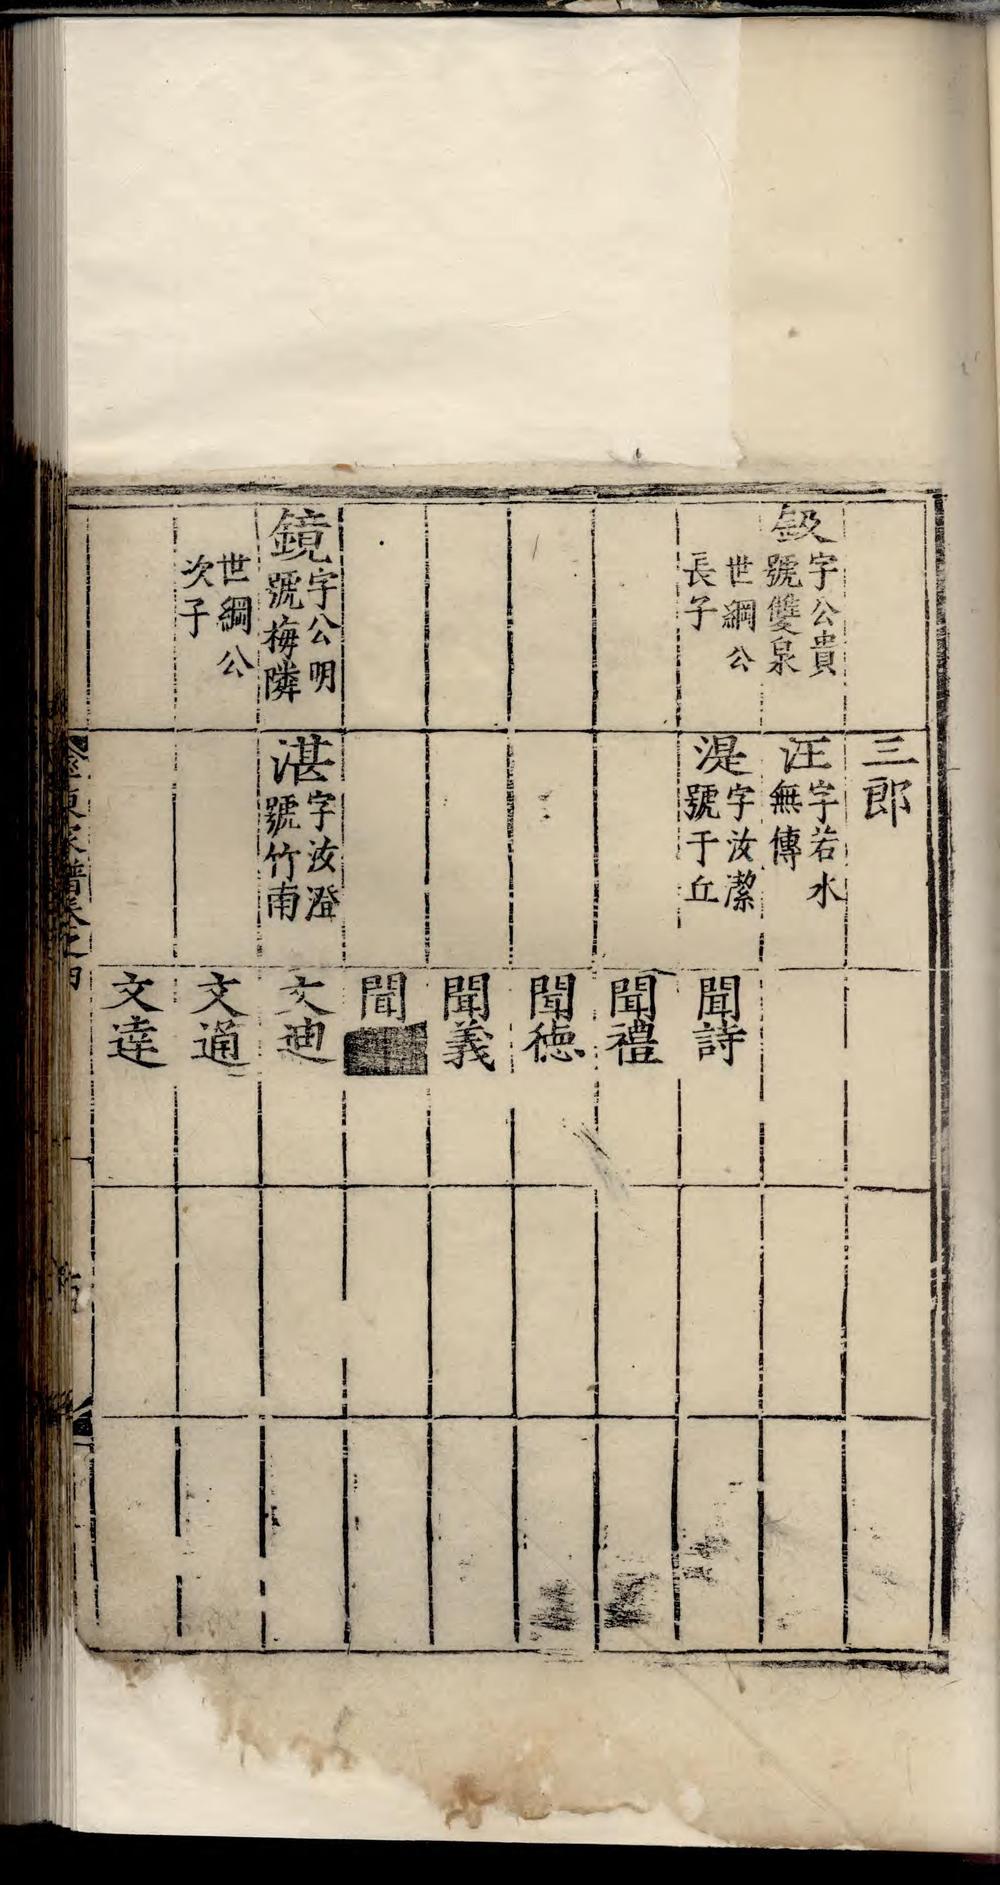 三郎
鈒字公貴
號雙泉
汪字若水
無傳
世綱公
長子
湜字汝潔
號于丘
聞詩
聞禮
聞德
聞義
聞
鏡字公明
號梅隣
湛字汝澄
號竹南
文迪
世綱公
次子
文通
文達
東家譜卷之四